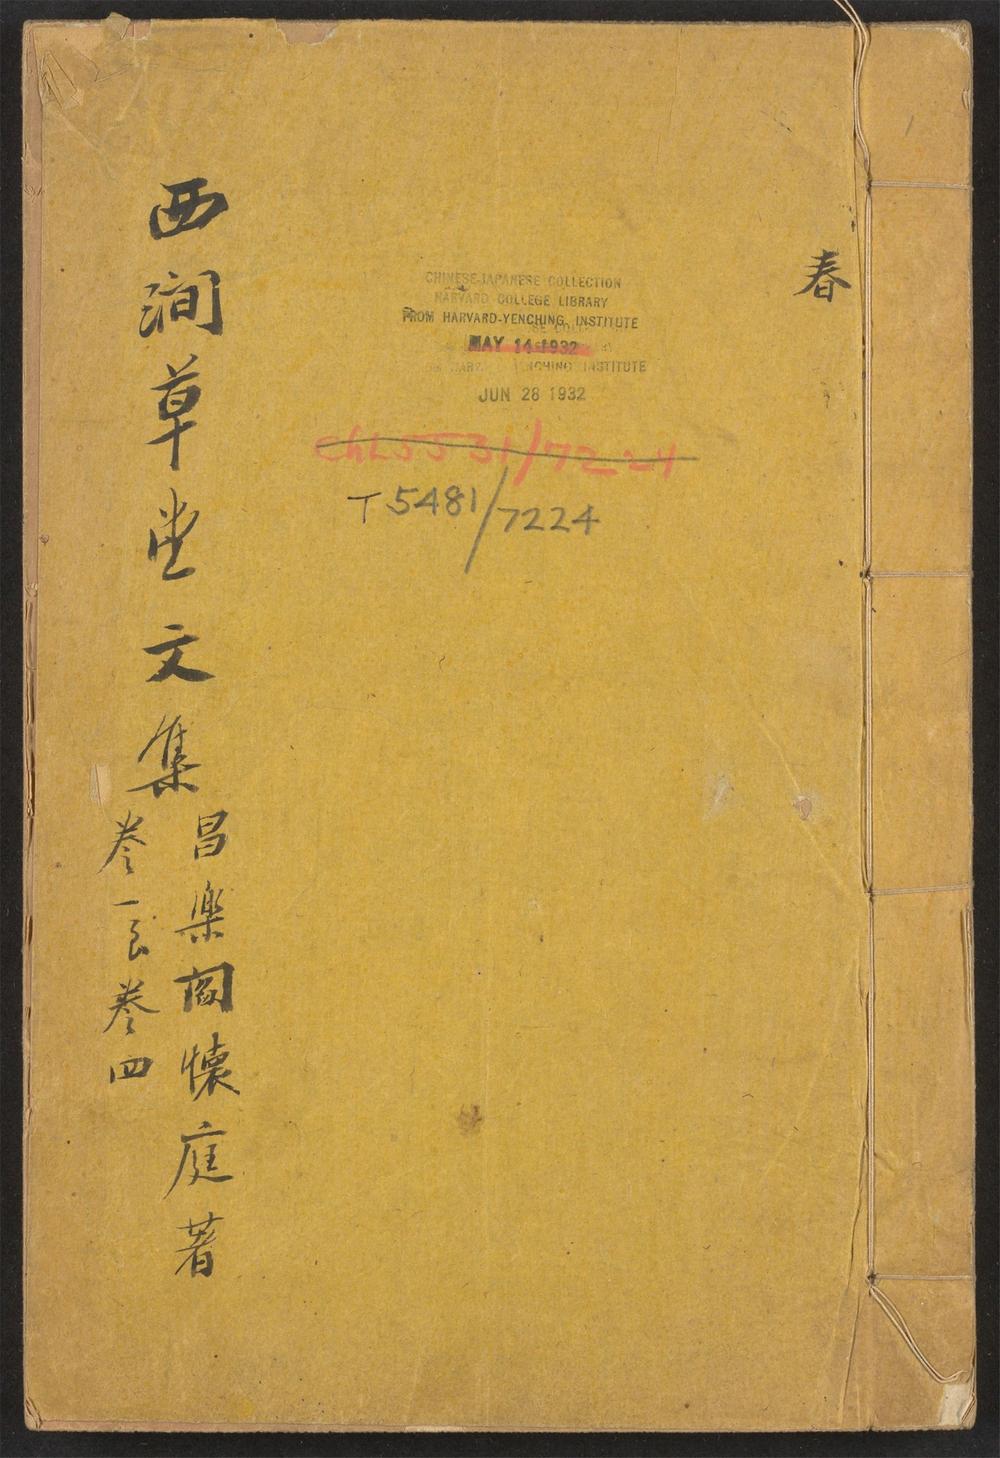 春
CHINESE-JAPANESE COLLECTION
HARVARD COLLEGE LIBRARY
FROM HARVARD-YENCHING INSTITUTE
MAY 14 1932
INSTITUTE
JUN 28 1932
ChL5531/7224
T5481/7224
西澗草堂文集
昌樂閻懷庭著
卷一 卷四